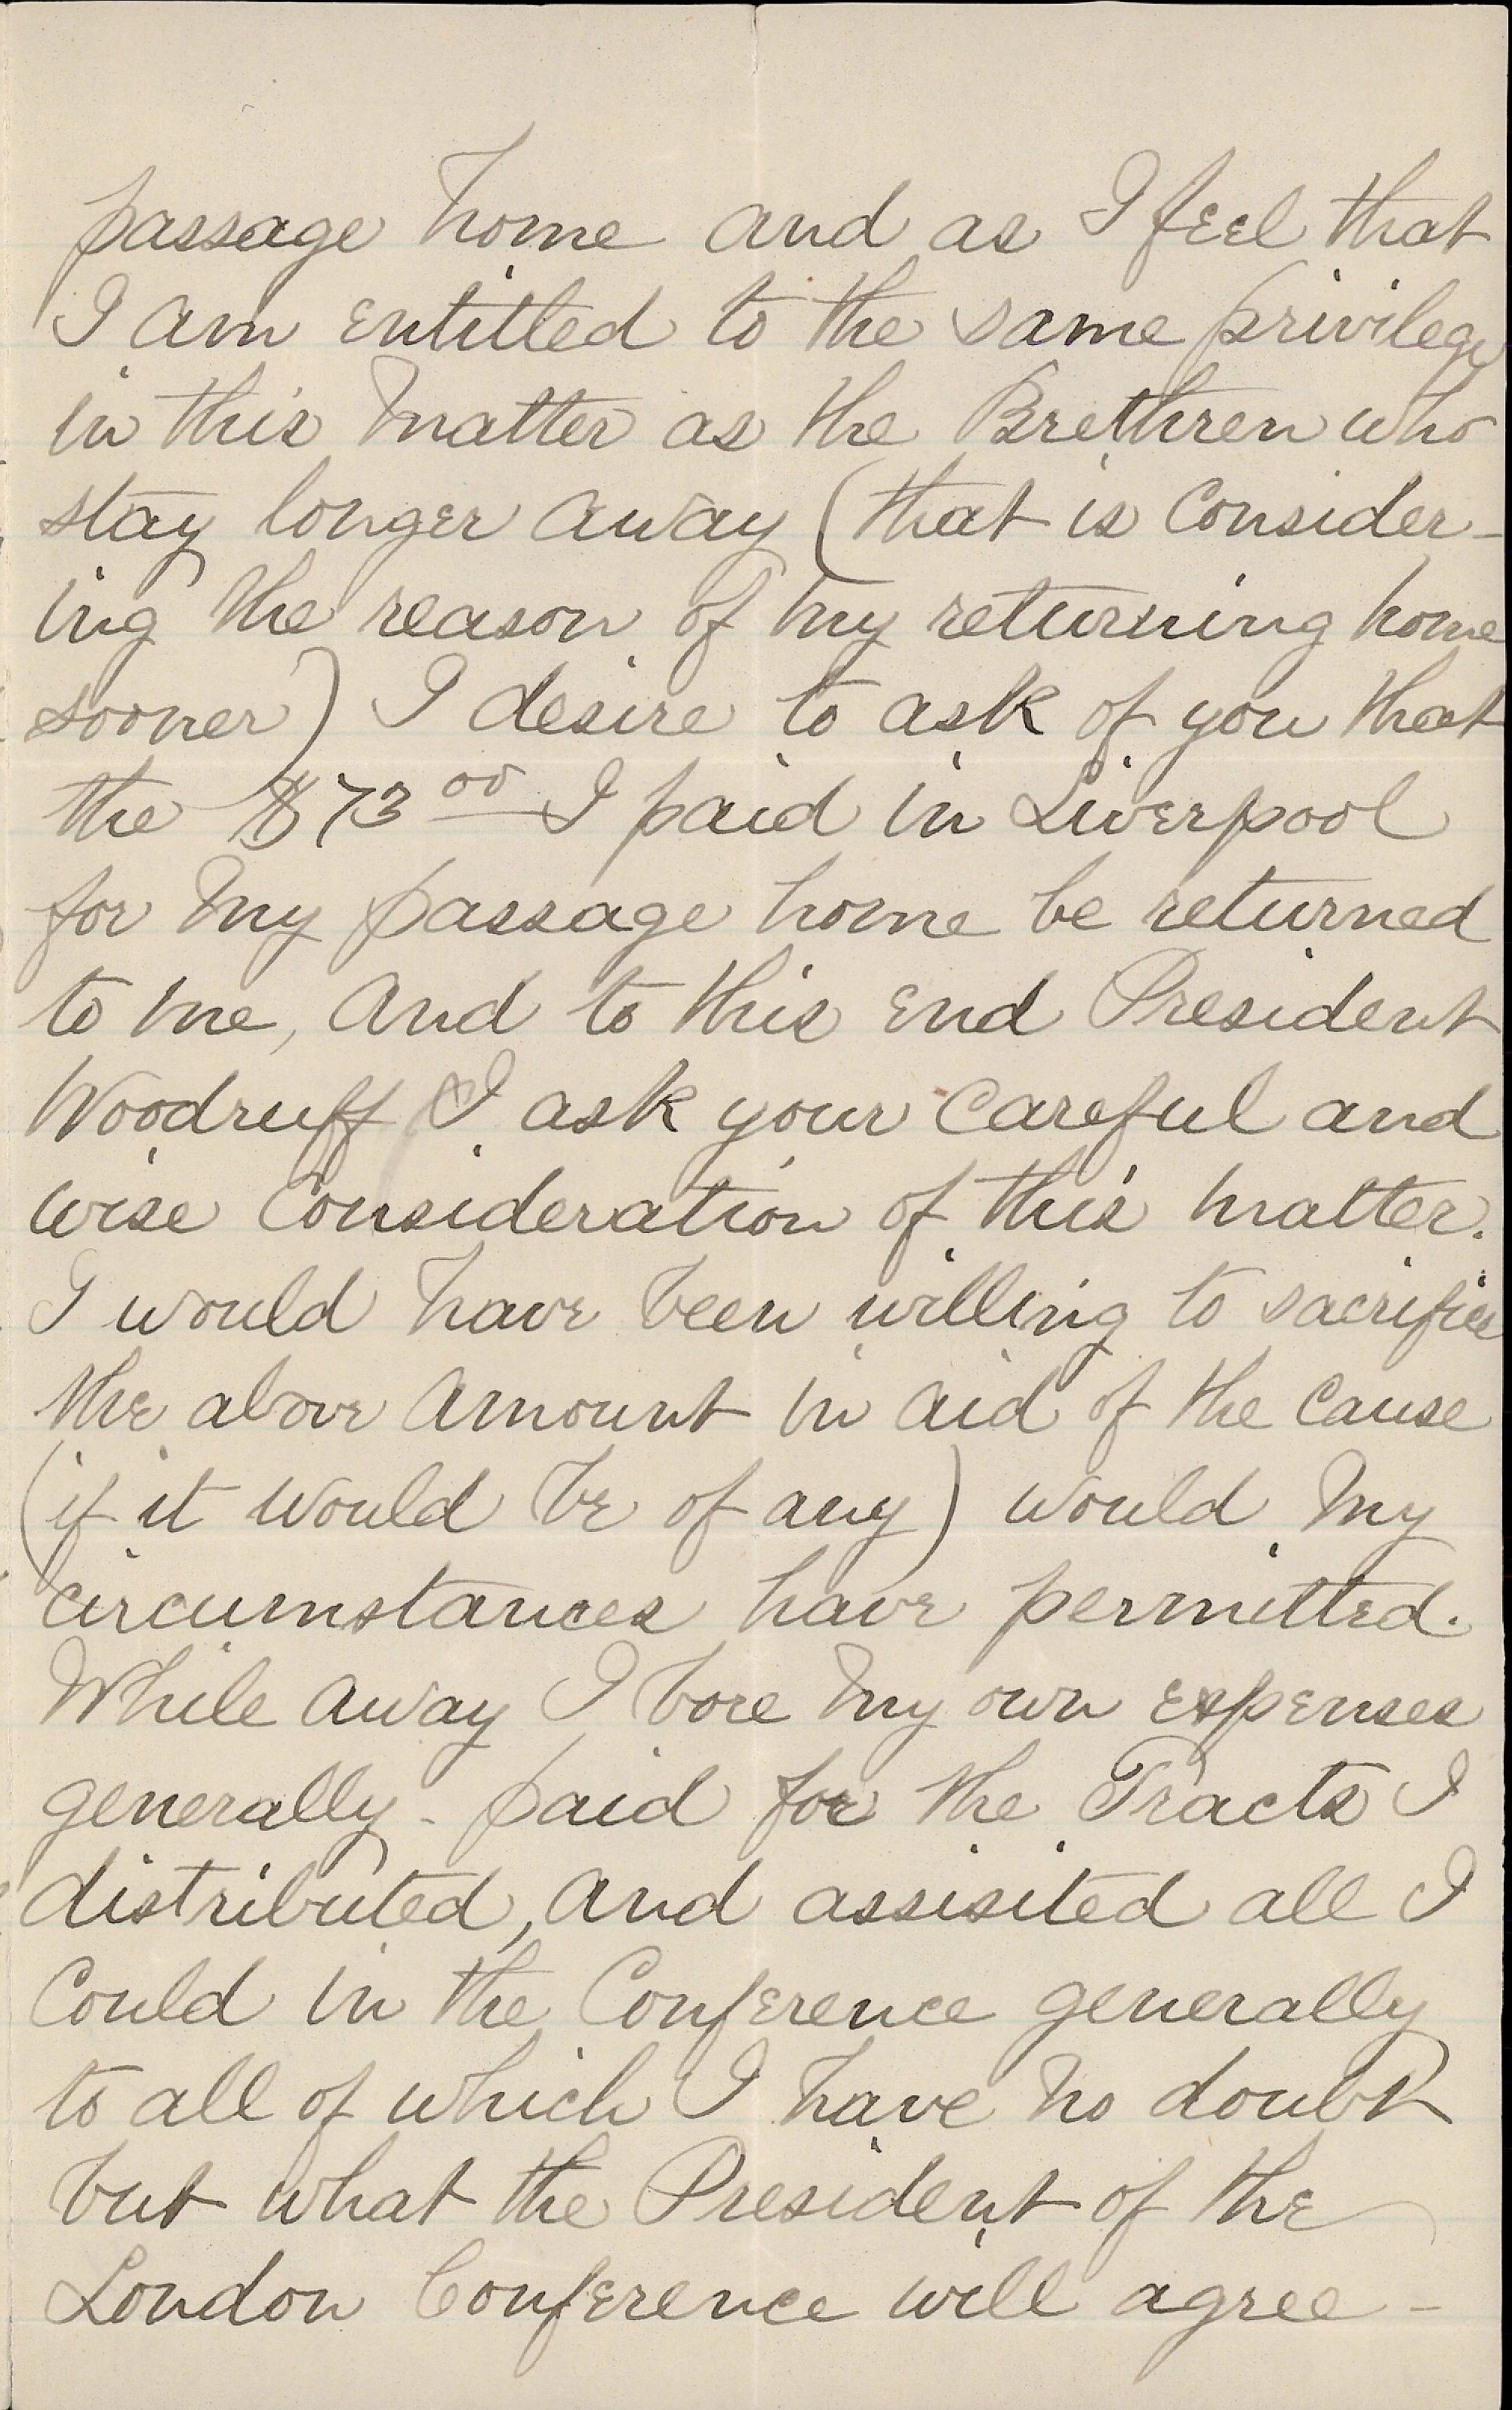 passage home and as I feel that
I am entitled to the same privilege
in this matter as the Brethren who
stay longer away (that is Consider-
ing the reason of my returning home
sooner) I desire to ask of you that
the $73 00 I paid in Liverpool
for my passage home be returned
to me, and to this end President
Woodruff I ask your careful and
wise Consideration of this matter.
I would have been willing to sacrifice
the above amount in aid of the cause
(if it would be of any) would my
circumstances have permitted.
While away I bore my own expenses
generally - paid for the Tracts I
distributed, and assisited all I
Could in the Conference generally
to all of which I have no doubt
but what the President of the
London Conference will agree -